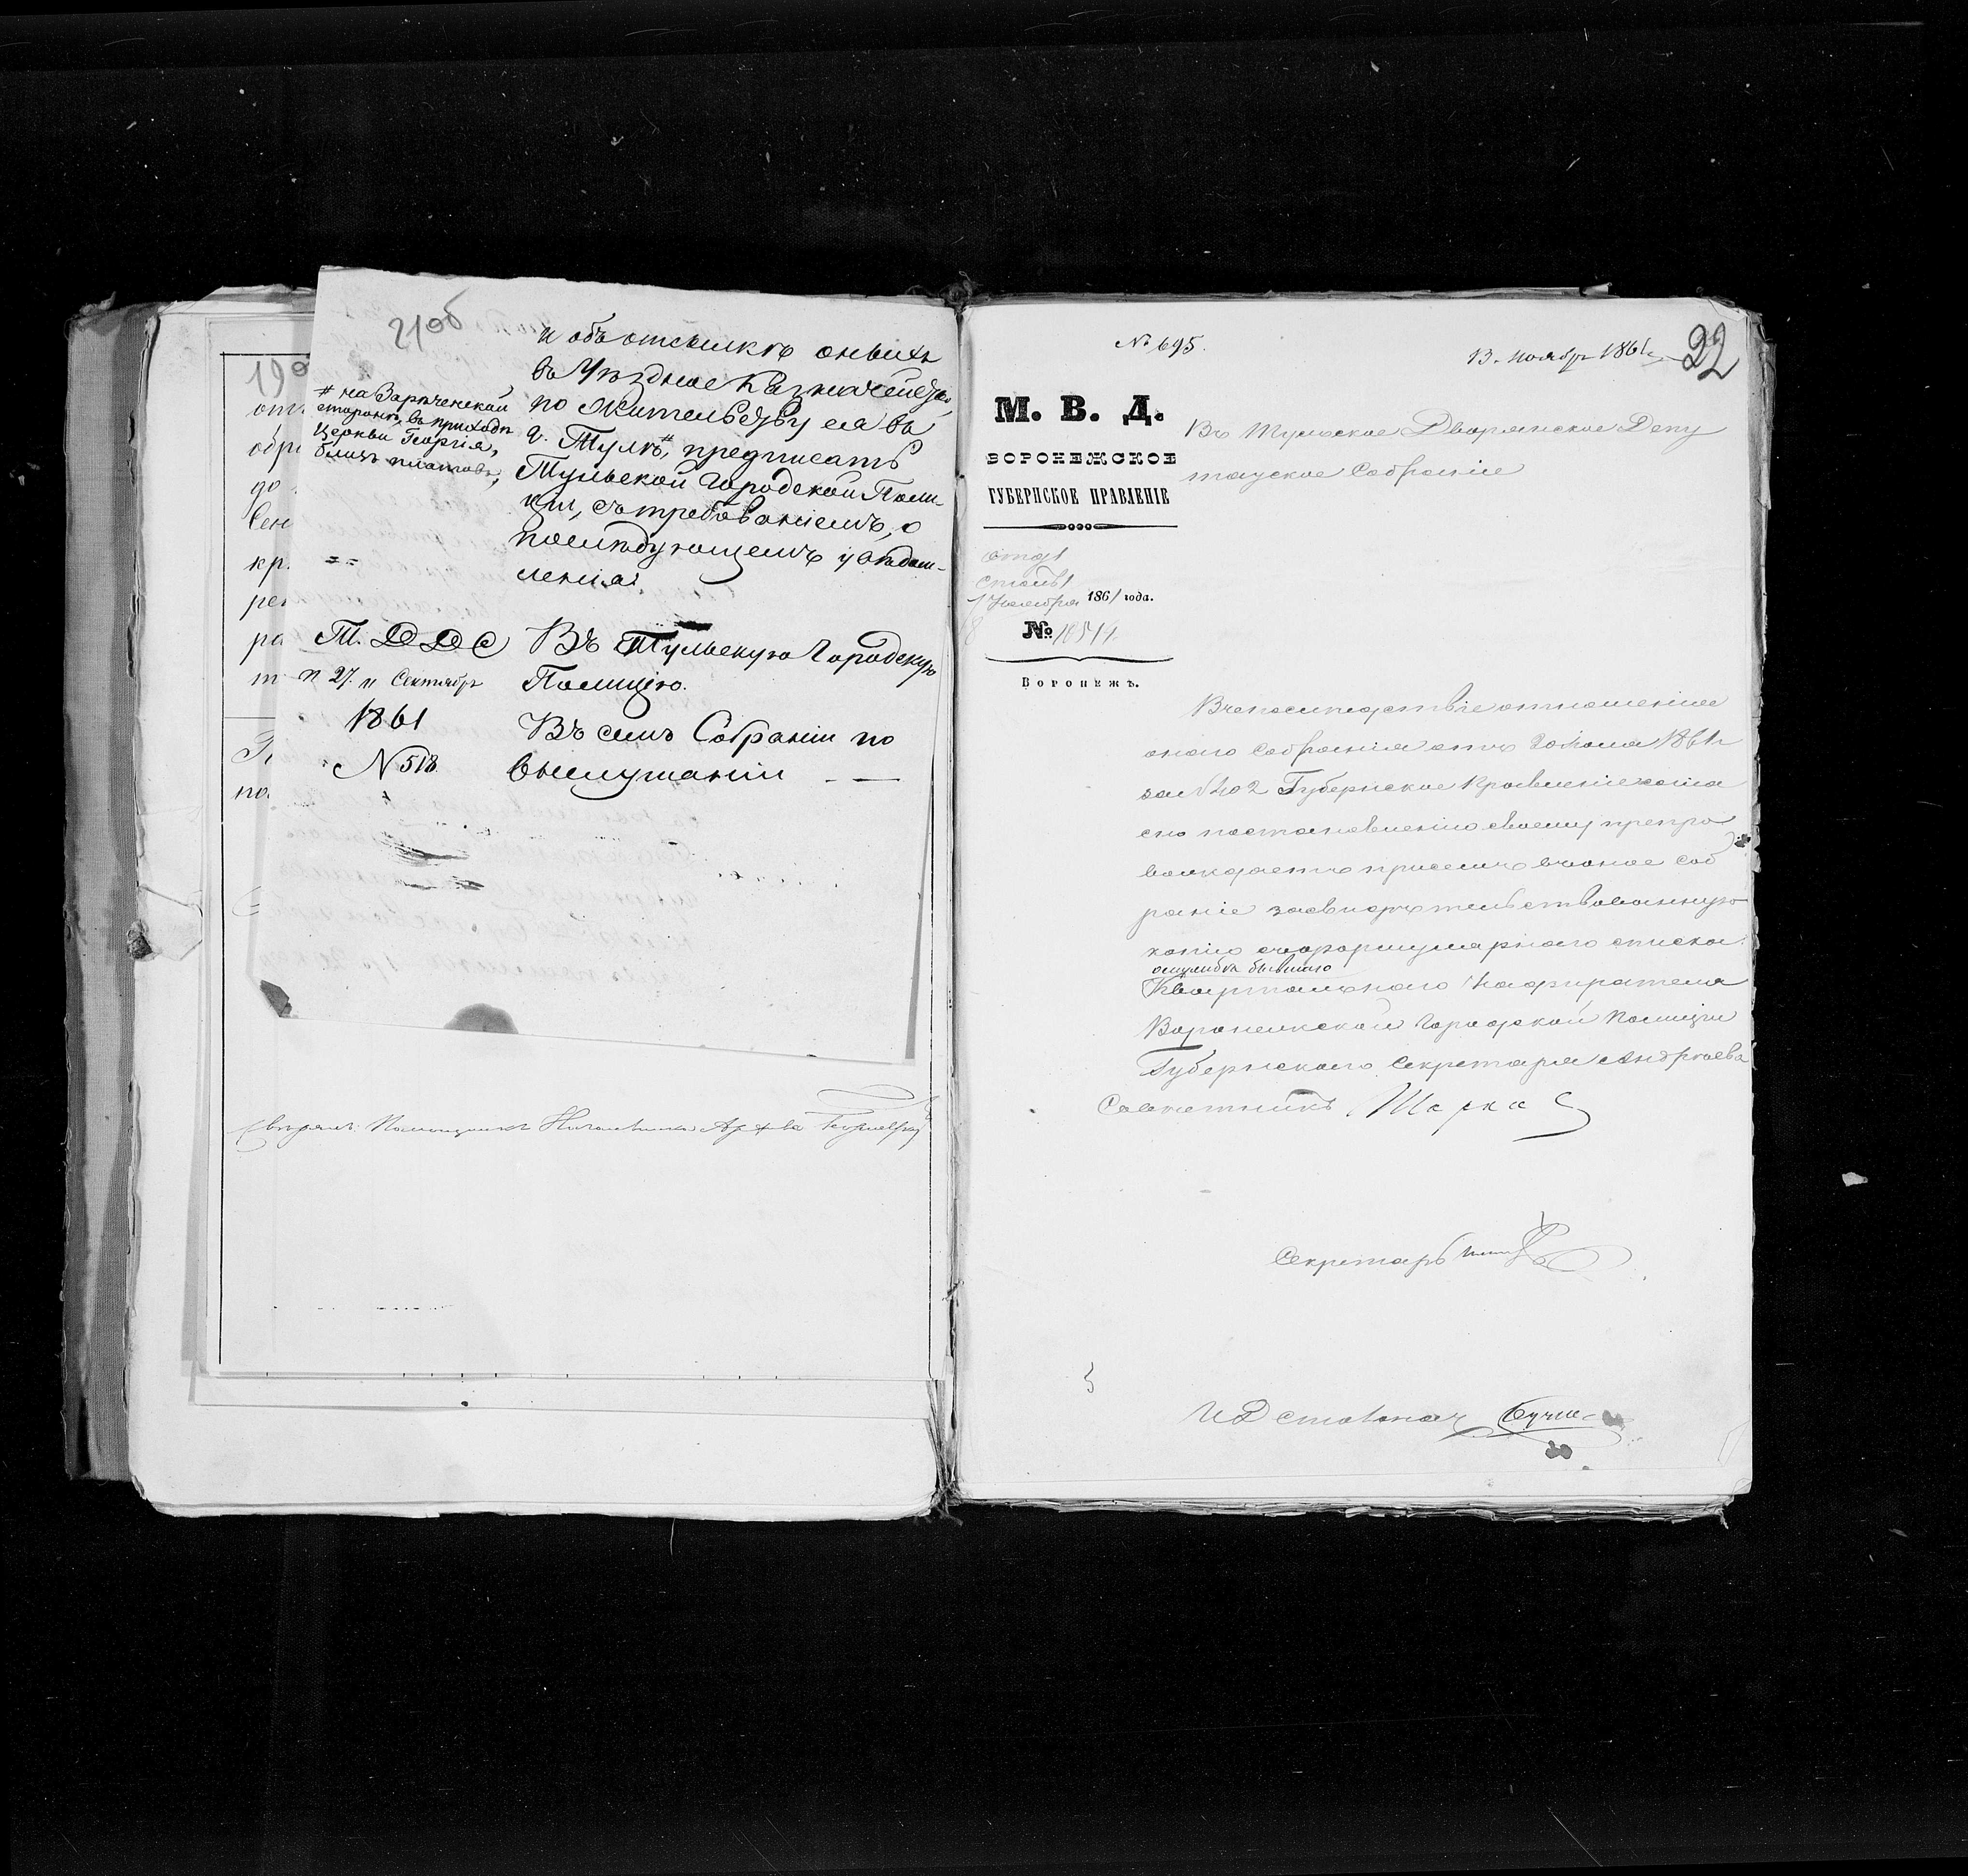 21об
и объ отсылкѣ оныхъ
въ Уѣздное Казначейство,
по жительству ея въ
г. Тулѣ,# предписать
Тульской Городской Поли-
ціи, съ требованіемъ, о
послѣдующемъ увѣдом-
ленія.
# на Зарѣченской
сторонѣ, въ приходѣ
Церкви Георгія,
близъ
Т. Д Д С
п 27 и Сентябр
1861
N 518
Въ Тульскую Городскую
Полицію.
Въ семъ Собраніи по
выслушаніи — —
190
отк
обр
до
вен
кр.
рен
ра
т
по.
Свѣрялъ: Помощникъ Начальника Архива
№ 695.
13. ноябр 1861 г.
22
М. В. Д.
ВОРОНЕЖСКОЕ
ГУБЕРНСКОЕ ПРАВЛЕНІЕ
отд 1
столъ 1
Ноября 1861 года.
№
Воронежъ.
Въ Тульское Дворянское Депу
татское Собраніе
Въ послѣдствіе отношенія
онаго Собранія отъ 20 Іюля 1861 г
за № 402 Губернское Правленіе согла
сно постановленію своему препро
вождаетъ при семъ въ оное Соб
раніе засвидѣтельствованную
копію съ формулярнаго списка
о службѣ бывшаго
Квартальнаго Надзирателя
Воронежской Городской Полиціи
Губернскаго Секретаря Андреева
Совѣтникъ
Секретарь
И Д Столонач